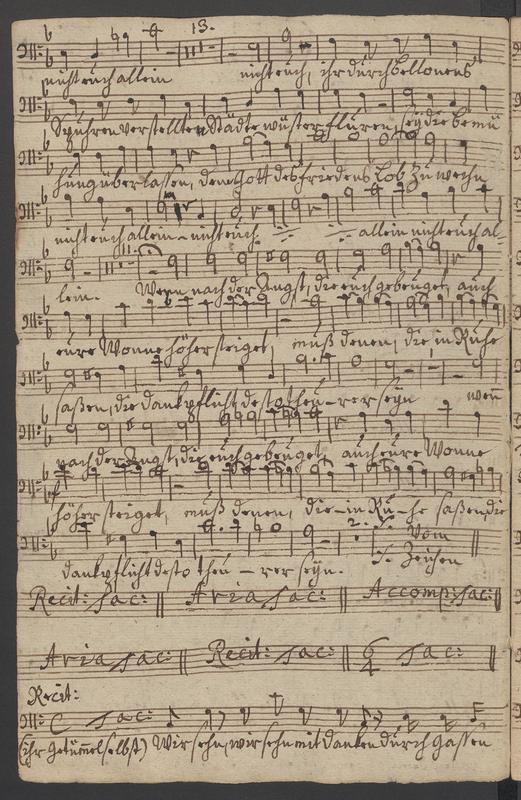 13.
nicht euch allein nicht euch, ihr durch Bellonens
Spuhren verstellten Städte wüster fluren, seÿd die bemü
hung überlassen, dem Gott des friedens Lob zu weihn
nicht euch allein – nicht euch allein nicht euch al–
lein. Wenn nach der Angst, die euch gebeuget, auch
eure Wonne höher steiget, muß denen, die in Ruhe
saßen, die danckpflicht desto theu – rer seyn wen̄
nach der Angst, die euch gebeuget, auch eure Wonne
höher steiget, muß denen, die – in Ru – he saßen, die
2. Vom
danckpflicht desto theu – rer seyn. Zeichen
Recit: tac: || Aria tac: || Accomp: tac:
Aria tac: || Recit: tac: || 6/4 tac:
Recit:
C tac:
(ihr Getüm̄el selbst) Wir sehn, wir sehn mit dancken durch Gassen